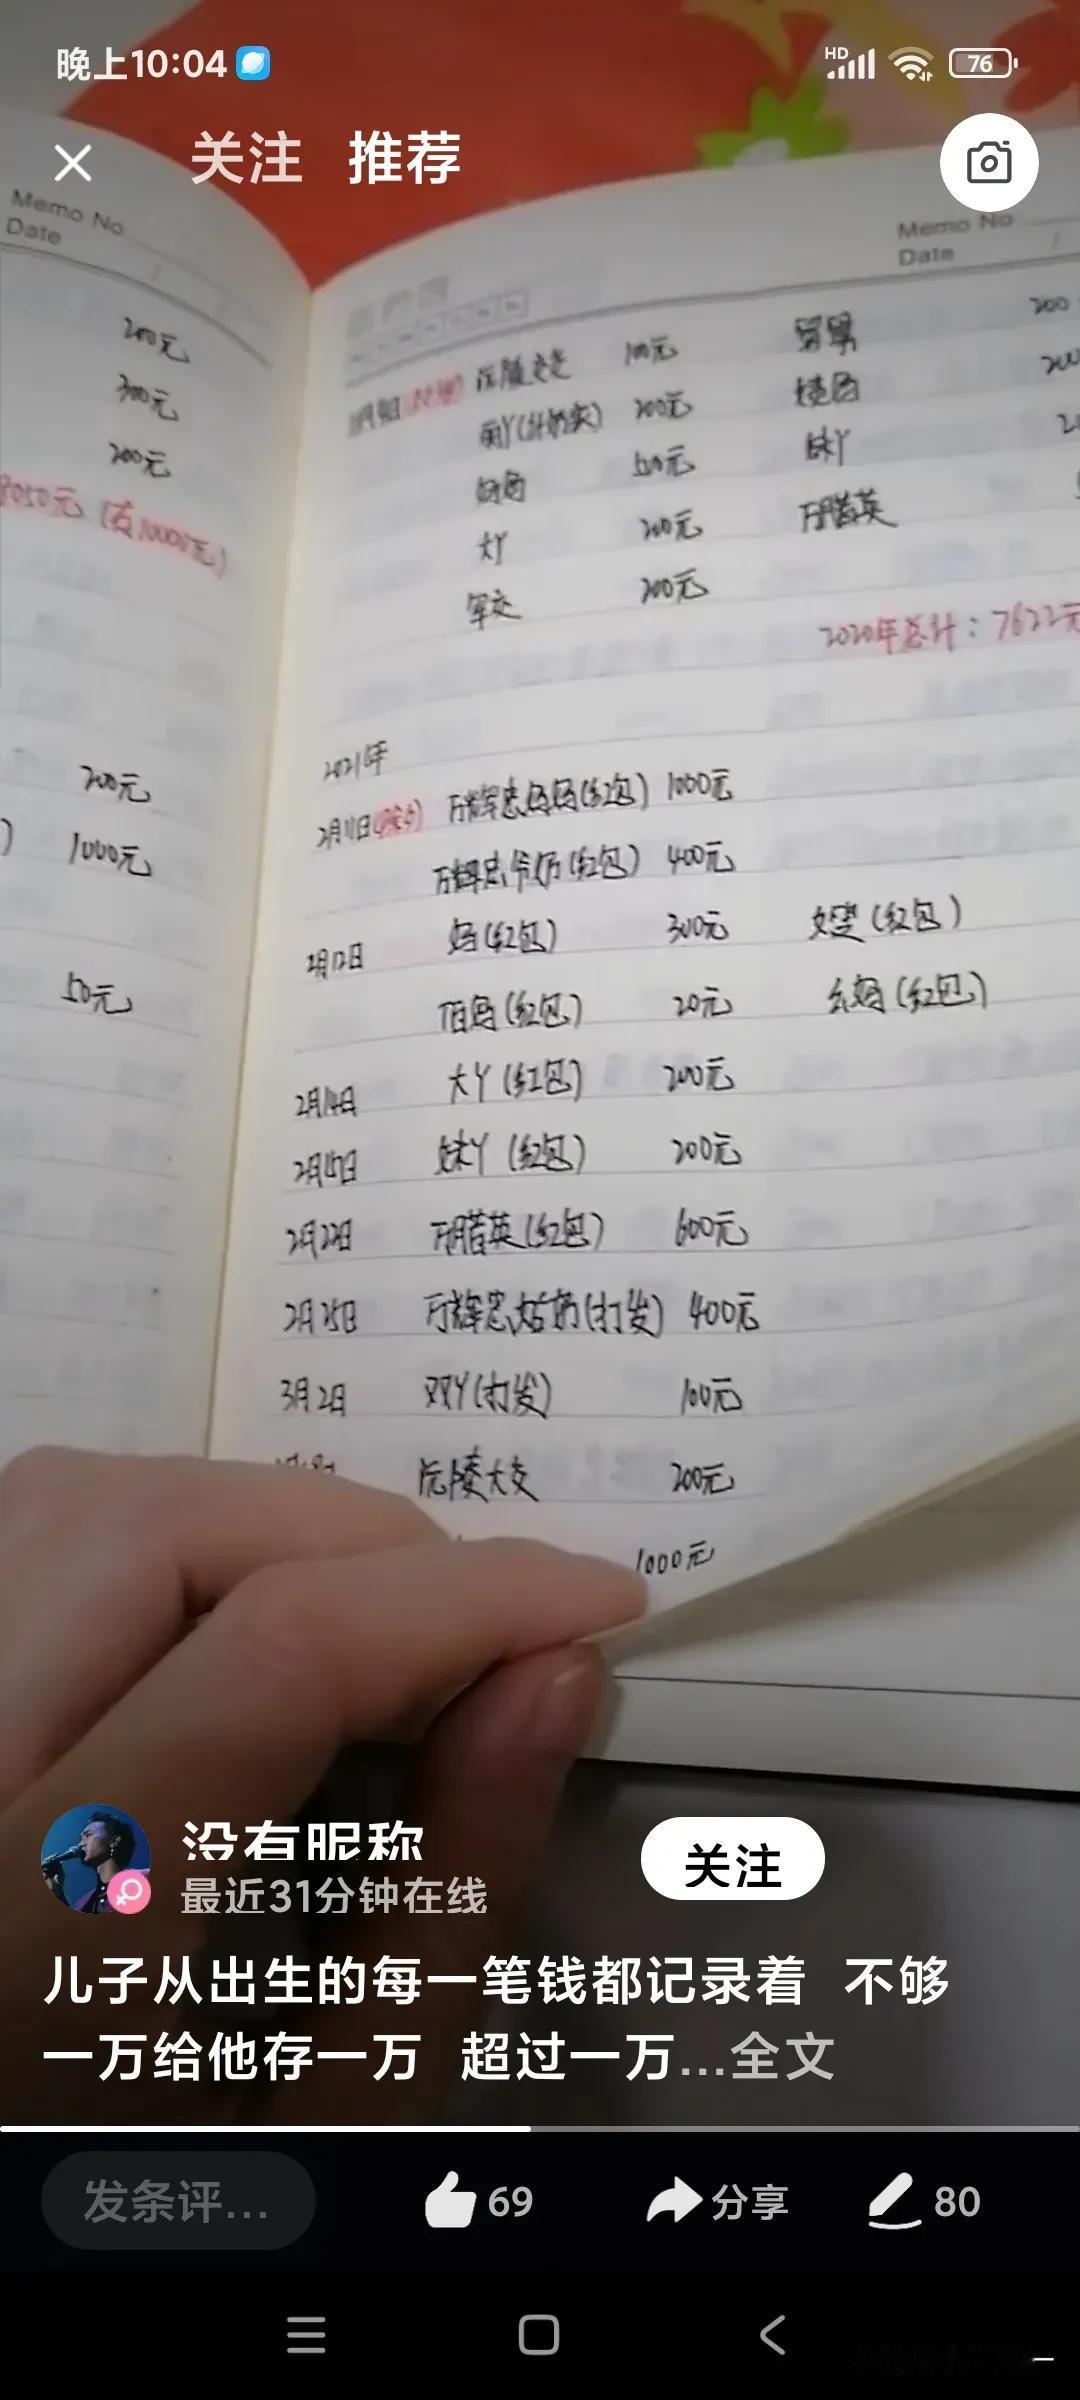 晚上10:04
HD 76
关注 推荐
Memo No
Date
Memo No
Date
200元 100元 舅舅 200
300元 200元
200元 500元 妹丫
8050元（存10000元） 大丫 200元 万腊英
200元
2020年总计：7622元
2021年
2月11日 万辉忠妈妈(红包) 1000元
200元 万辉忠爷奶(红包) 400元
1000元 2月12日 妈(红包) 300元 (红包)
50元 伯妈(红包) 20元 幺妈(红包)
2月14日 大丫(红包) 200元
2月15日 妹丫(红包) 200元
2月22日 万腊英(红包) 600元
2月25日 万辉忠姑奶(打发) 400元
3月2日 双丫(打发) 100元
沅陵大交 200元
1000元
没有昵称
最近31分钟在线
关注
儿子从出生的每一笔钱都记录着 不够
一万给他存一万 超过一万...全文
发条评... 69 分享 80